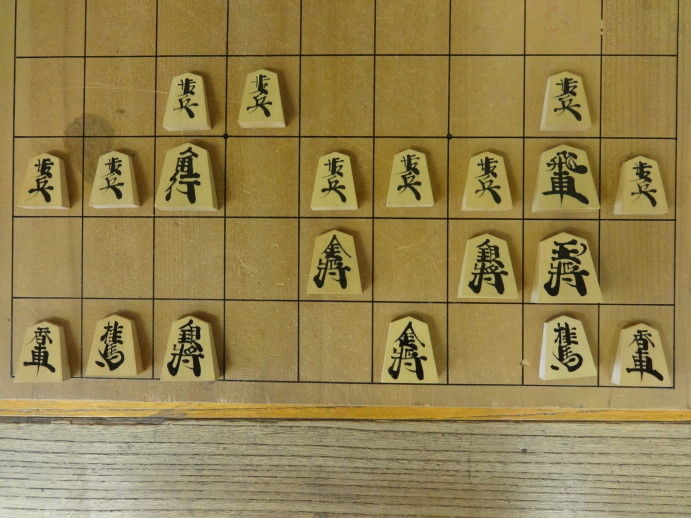 歩兵 歩兵 歩兵
歩兵 歩兵 角行 歩兵 歩兵 歩兵 飛車 歩兵
金将 銀将 玉将
香車 桂馬 銀将 金将 桂馬 香車